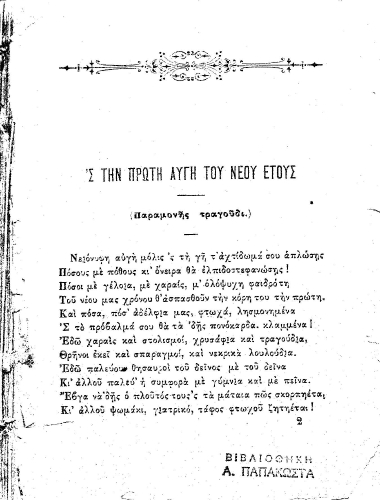 'Σ ΤΗΝ ΠΡΩΤΗ ΑΥΓΗ ΤΟΥ ΝΕΟΥ ΕΤΟΥΣ
(Παραμονῆς τραγοῦδι.)
Νειόνυφη αὐγὴ μόλις 'ς τὴ γῆ τ' ἀχτίδωμά σου ἁπλώσῃς
Πόσους μὲ πόθους κι' ὄνειρα θὰ ἐλπιδοστεφανώσῃς!
Πόσοι μὲ γέλοια, μὲ χαραίς, μ' ὁλόψυχη φαιδρότη
Τοῦ νέου μας χρόνου θ' ἀσπασθοῦν τὴν κόρη του τὴν πρώτη.
Καὶ πόσα, πόσ' ἀδέλφια μας, φτωχά, λησμονημένα
'Σ τὸ πρόβαλμά σου θὰ τὰ 'δῇς πονόκαρδα. κλαμμένα!
Ἐδῶ χαραὶς καὶ στολισμοί, χρυσάφια καὶ τραγούδια,
Θρῆνοι ἐκεῖ καὶ σπαραγμοί, καὶ νεκρικὰ λουλούδια.
Ἐδῶ παλεύουν θησαυροὶ τοῦ δεῖνος μὲ τοῦ δεῖνα
Κι' ἀλλοῦ παλεύ' ἡ συμφορὰ μὲ γύμνια καὶ μὲ πεῖνα.
Ἔβγα νὰ 'δῇς ὁ πλοῦτός τους 'ς τὰ μάταια πῶς σκορπιέται;
Κι' ἀλλοῦ ψωμάκι, γιατρικό, τάφος φτωχοῦ ζητιέται!
2
ΒΙΒΛΙΟΘΗΚΗ
Α. ΠΑΠΑΚΩΣΤΑ